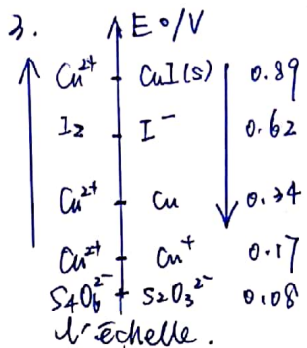 3. E°/V
Cu²⁺ CuI(s) 0.89
I₂ I⁻ 0.62
Cu²⁺ Cu 0.34
Cu²⁺ Cu⁺ 0.17
S₄O₆²⁻ S₂O₃²⁻ 0.08
l'échelle.